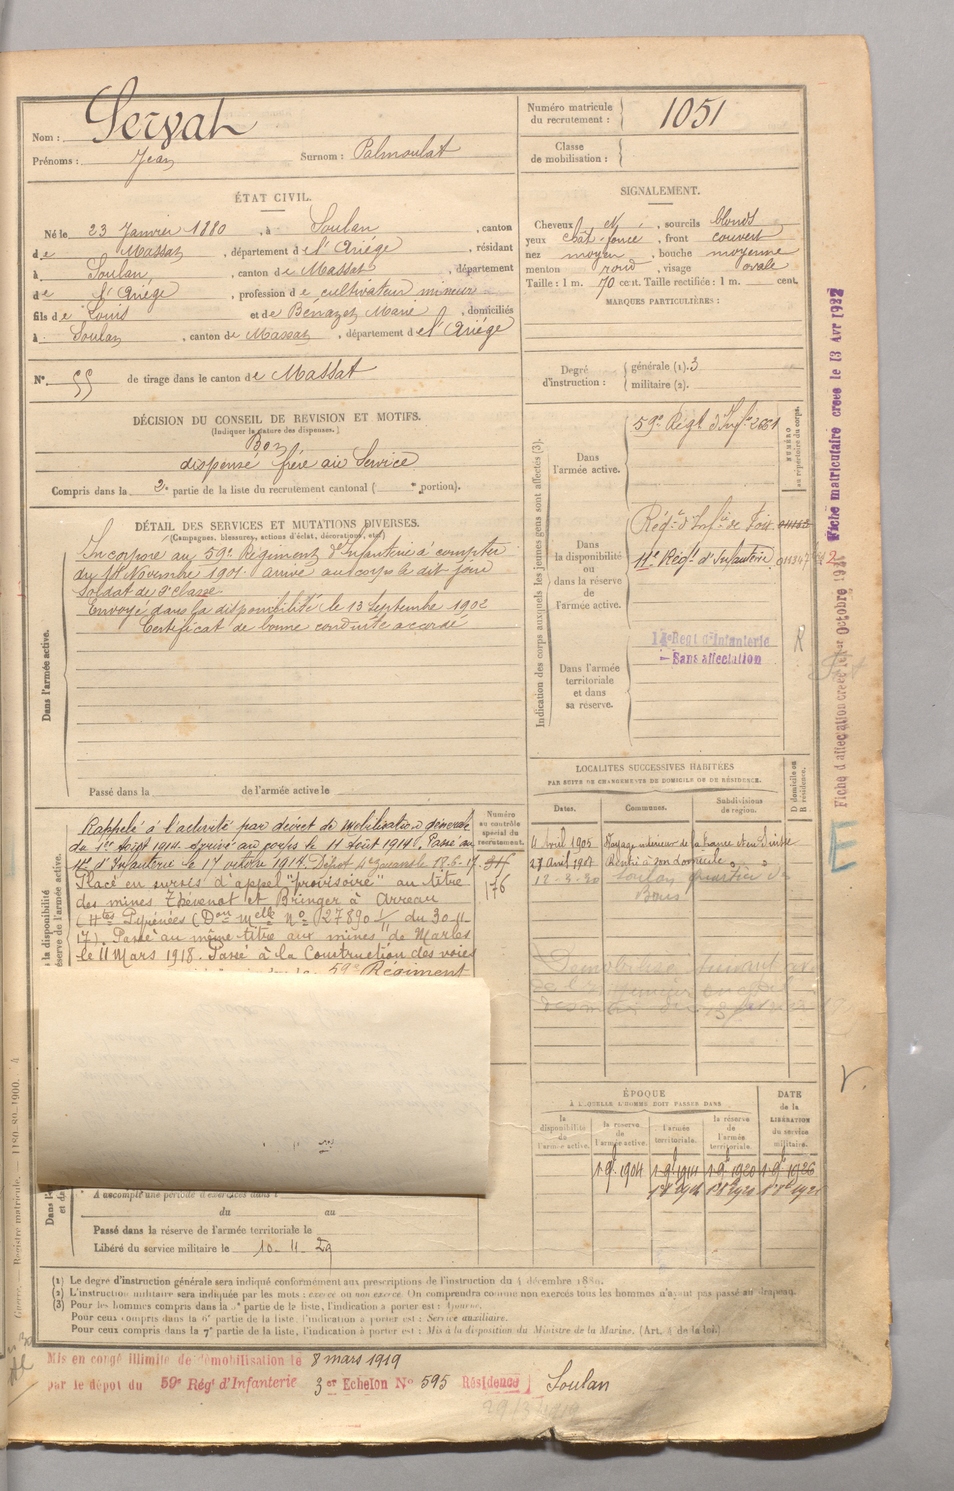 Nom : Servat
Prénoms : Jean Surnom : Palmoulat
Numéro matricule du recrutement : 1051
Classe de mobilisation :
ÉTAT CIVIL.
Né le 23 Janvier 1880, à Soulan, canton
de Massat, département de l'Ariège, résidant
à Soulan, canton de Massat, département
de l'Ariège, profession de cultivateur mineur
fils de Louis et de Bénazet Marie, domiciliés
à Soulan, canton de Massat, département de l'Ariège
N° 55 de tirage dans le canton de Massat
SIGNALEMENT.
Cheveux, sourcils blonds
yeux chât. foncé, front couvert
nez moyen, bouche moyenne
menton rond, visage ovale
Taille : 1 m. 70 cent. Taille rectifiée : 1 m. cent.
MARQUES PARTICULIÈRES :
Degré d'instruction : générale (1). 3
militaire (2).
DÉCISION DU CONSEIL DE REVISION ET MOTIFS.
(Indiquer la nature des dispenses.)
Bon
dispensé frère au Service
Compris dans la 2e partie de la liste du recrutement cantonal ( e portion).
DÉTAIL DES SERVICES ET MUTATIONS DIVERSES.
(Campagnes, blessures, actions d'éclat, décorations, etc.)
Dans l'armée active.
Incorporé au 59e Régiment d'Infanterie à compter
du Novembre 1901 arrivé au corps le dit jour
Soldat de 2e classe
Envoyé dans la disponibilité le 13 Septembre 1902
Certificat de bonne conduite accordé
Passé dans la de l'armée active le
Indication des corps auxquels les jeunes gens sont affectés (3).
NUMÉRO au répertoire du corps.
Dans l'armée active.
59e Régt d'Infie
Dans la disponibilité ou dans la réserve de l'armée active.
Régt d'Infie de Foix
14e Régt d'Infanterie
Dans l'armée territoriale et dans sa réserve.
14e Régt d'Infanterie
Sans affectation
Fiche matriculaire créée le 13 Avr 1922
Fiche d'affectation créée le 1er Octobre
LOCALITÉS SUCCESSIVES HABITÉES
PAR SUITE DE CHANGEMENTS DE DOMICILE OU DE RÉSIDENCE.
Dates. Communes. Subdivisions de region. D domicile ou R résidence.
4 Avril 1905 Voyage intérieur de la France et en Suisse
27 Avril 1907 Rentré à son domicile
12-3-30 Soulan quartier de
Démobilisé suivant
la disponibilité
réserve de l'armée active.
Numéro au contrôle spécial du recrutement.
176
Rappelé à l'activité par décret de mobilisation générale
du 1er Août 1914. Arrivé au corps le 11 Août 1914. Passé au
14e d'Infanterie le 17 octobre 1914. Dépôt 18.6.17
Placé en sursis d'appel "provisoire" au titre
des mines Thévenot et Bringer à Arreau
(Htes Pyrénées (Don Melle No 27890 du 30-11-
17). Passé au même titre aux mines de Marles
le 11 Mars 1918. Passé à la Construction des voies
59e Régiment
ÉPOQUE
À LAQUELLE L'HOMME DOIT PASSER DANS
la disponibilité de l'armée active. la réserve de l'armée active. l'armée territoriale. la réserve de l'armée territoriale.
DATE de la LIBÉRATION du service militaire.
1 9bre 1904 1 9bre 1914 1 9bre 1920 1 9bre 1926
A accompli une période d'exercices dans
du au
Passé dans la réserve de l'armée territoriale le
Libéré du service militaire le 10-11-29
(1) Le degré d'instruction générale sera indiqué conformément aux prescriptions de l'instruction du 4 décembre 1889.
(2) L'instruction militaire sera indiquée par les mots : exercé ou non exercé. On comprendra comme non exercés tous les hommes n'ayant pas passé au drapeau.
(3) Pour les hommes compris dans la 5e partie de la liste, l'indication à porter est : Ajourné.
Pour ceux compris dans la 6e partie de la liste, l'indication à porter est : Service auxiliaire.
Pour ceux compris dans la 7e partie de la liste, l'indication à porter est : Mis à la disposition du Ministre de la Marine. (Art. 4 de la loi.)
Mis en congé illimité de démobilisation le 8 mars 1919
par le dépôt du 59e Régt d'Infanterie 3er Echelon N° 595 Résidence Soulan
Registre matricule.